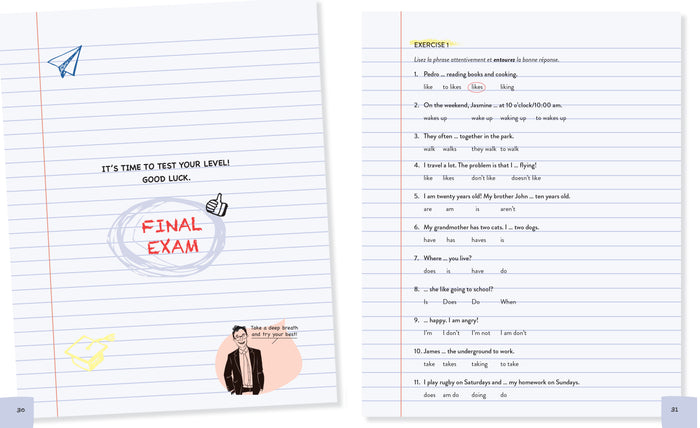 IT'S TIME TO TEST YOUR LEVEL!
GOOD LUCK.
FINAL
EXAM
Take a deep breath
and try your best!
30
EXERCISE 1
Lisez la phrase attentivement et entourez la bonne réponse.
1. Pedro ... reading books and cooking.
like to likes likes liking
2. On the weekend, Jasmine ... at 10 o'clock/10:00 am.
wakes up wake up waking up to wakes up
3. They often ... together in the park.
walk walks they walk to walk
4. I travel a lot. The problem is that I ... flying!
like likes don't like doesn't like
5. I am twenty years old! My brother John ... ten years old.
are am is aren't
6. My grandmother has two cats. I ... two dogs.
have has haves is
7. Where ... you live?
does is have do
8. ... she like going to school?
Is Does Do When
9. ... happy. I am angry!
I'm I don't I'm not I am don't
10. James ... the underground to work.
take takes taking to take
11. I play rugby on Saturdays and ... my homework on Sundays.
does am do doing do
31